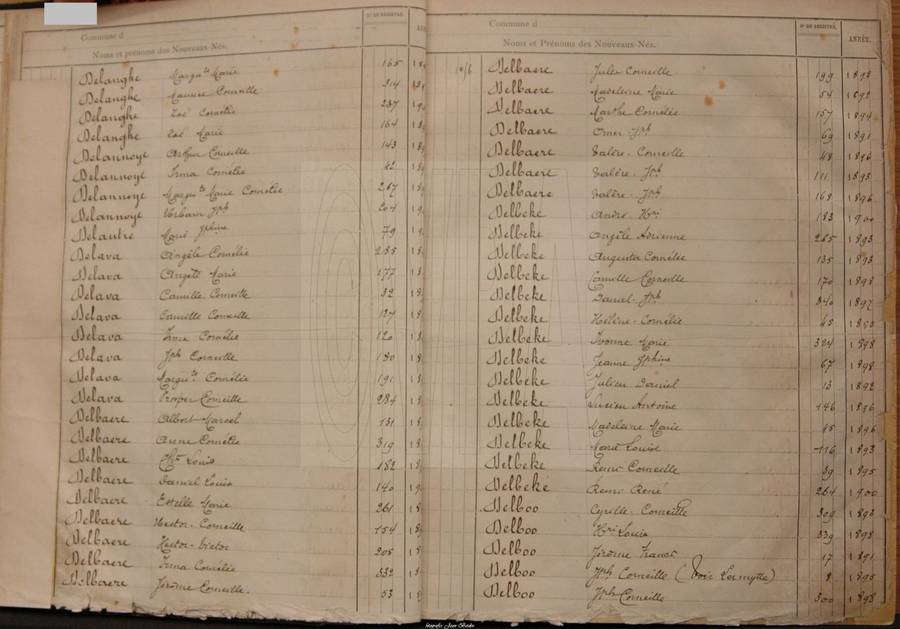 Commune d
Noms et prénoms des Nouveaux-Nés.
N° DE REGISTRE.
Delanghe Margu.te Marie 165 18
Delanghe Maurice Corneille 314
Delanghe Zoé Cornélie 237
Delanghe Zoé Marie 164
Delannoye Arthur Corneille 143 18
Delannoye Irma Cornélie 42
Delannoye Margu.te Marie Cornélie 267
Delannoye Urbain Jph 204
Delautre Marie Jphine 79
Delava Angèle Cornélie 235
Delava Angèle Marie 177
Delava Camille Corneille 32
Delava Camille Corneille 127
Delava Irma Cornélie 120
Delava Jph Corneille 180
Delava Margu.te Cornélie 191
Delava Prosper Corneille 284
Delbaere Albert Marcel 131
Delbaere Anna Cornélie 319
Delbaere Louis 182
Delbaere Daniel Louis 140
Delbaere Estelle Marie 261
Delbaere Hector-Corneille 154
Delbaere Hector-Victor 205
Delbaere Irma Cornélie 332
Delbaere Jérôme Corneille. 53
Commune d
Noms et Prénoms des Nouveaux-Nés.
N° DE REGISTRE. ANNÉE.
Delbaere Jules Corneille 199 1898
Delbaere Madeleine Marie 54 1892
Delbaere Marthe Cornélie 157 1894
Delbaere Omer Jph 69 1891
Delbaere Valère-Corneille 48 1896
Delbaere Valère Jph 111 1893
Delbaere Valère Jph 168 1896
Delbeke André Hri 183 1900
Delbeke Angèle Adrienne 265 1893
Delbeke Augusta Cornélie 135 1893
Delbeke Camille Corneille 170 1898
Delbeke Daniel Jph 340 1892
Delbeke Hélène-Cornélie 45
Delbeke Yvonne Marie 324 1898
Delbeke Jeanne Jphine 67 1898
Delbeke Julien Daniel 13 1892
Delbeke Lucien Antoine 146 1896
Delbeke Madeleine Marie 95 1896
Delbeke Marie Louise 116 1893
Delbeke Remi Corneille 39 1895
Delbeke Remi René 264 1900
Delboo Cyrille Corneille 309 1893
Delboo Hri Louis 339 1898
Delboo Jérôme Franç 17 1891
Delboo Jph Corneille (Voir Lermytte) 8 1895
Delboo Jph Corneille 300 1898